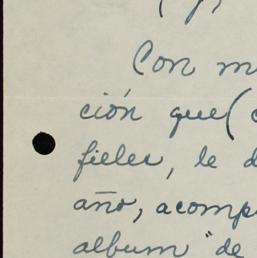 Con m
ción que (
fieles, le d
año, acomp
album "de